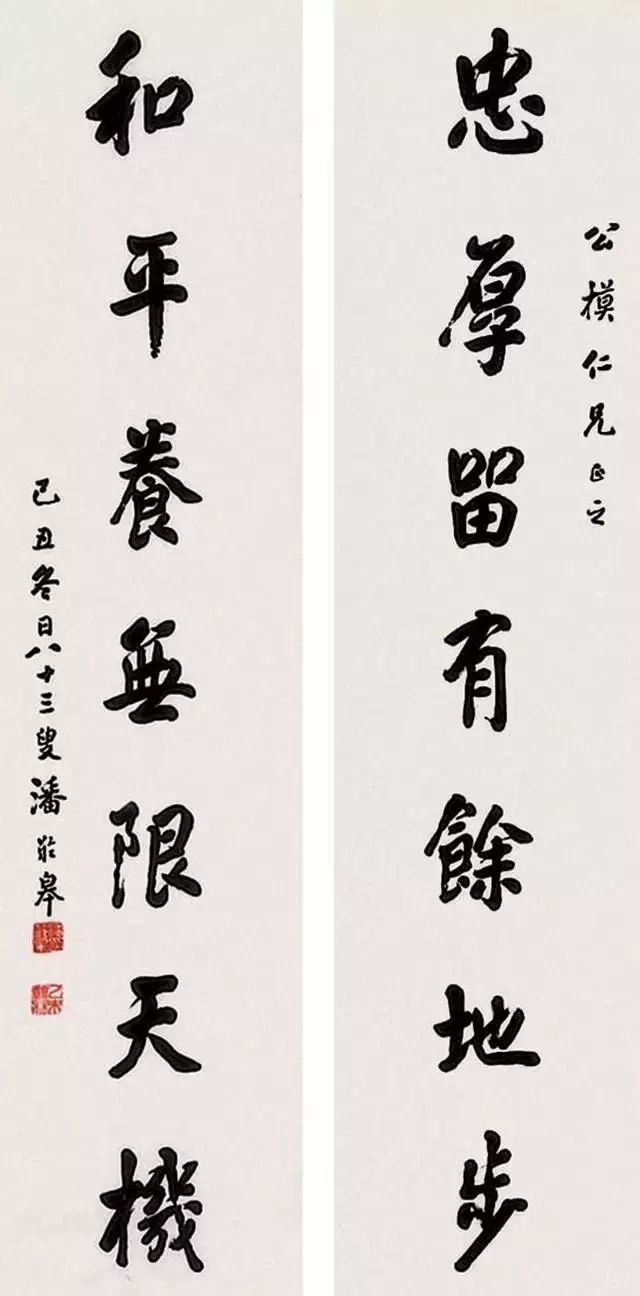 公模仁兄正之
忠厚留有餘地步
和平養無限天機
己丑冬日八十三叟潘齡皋